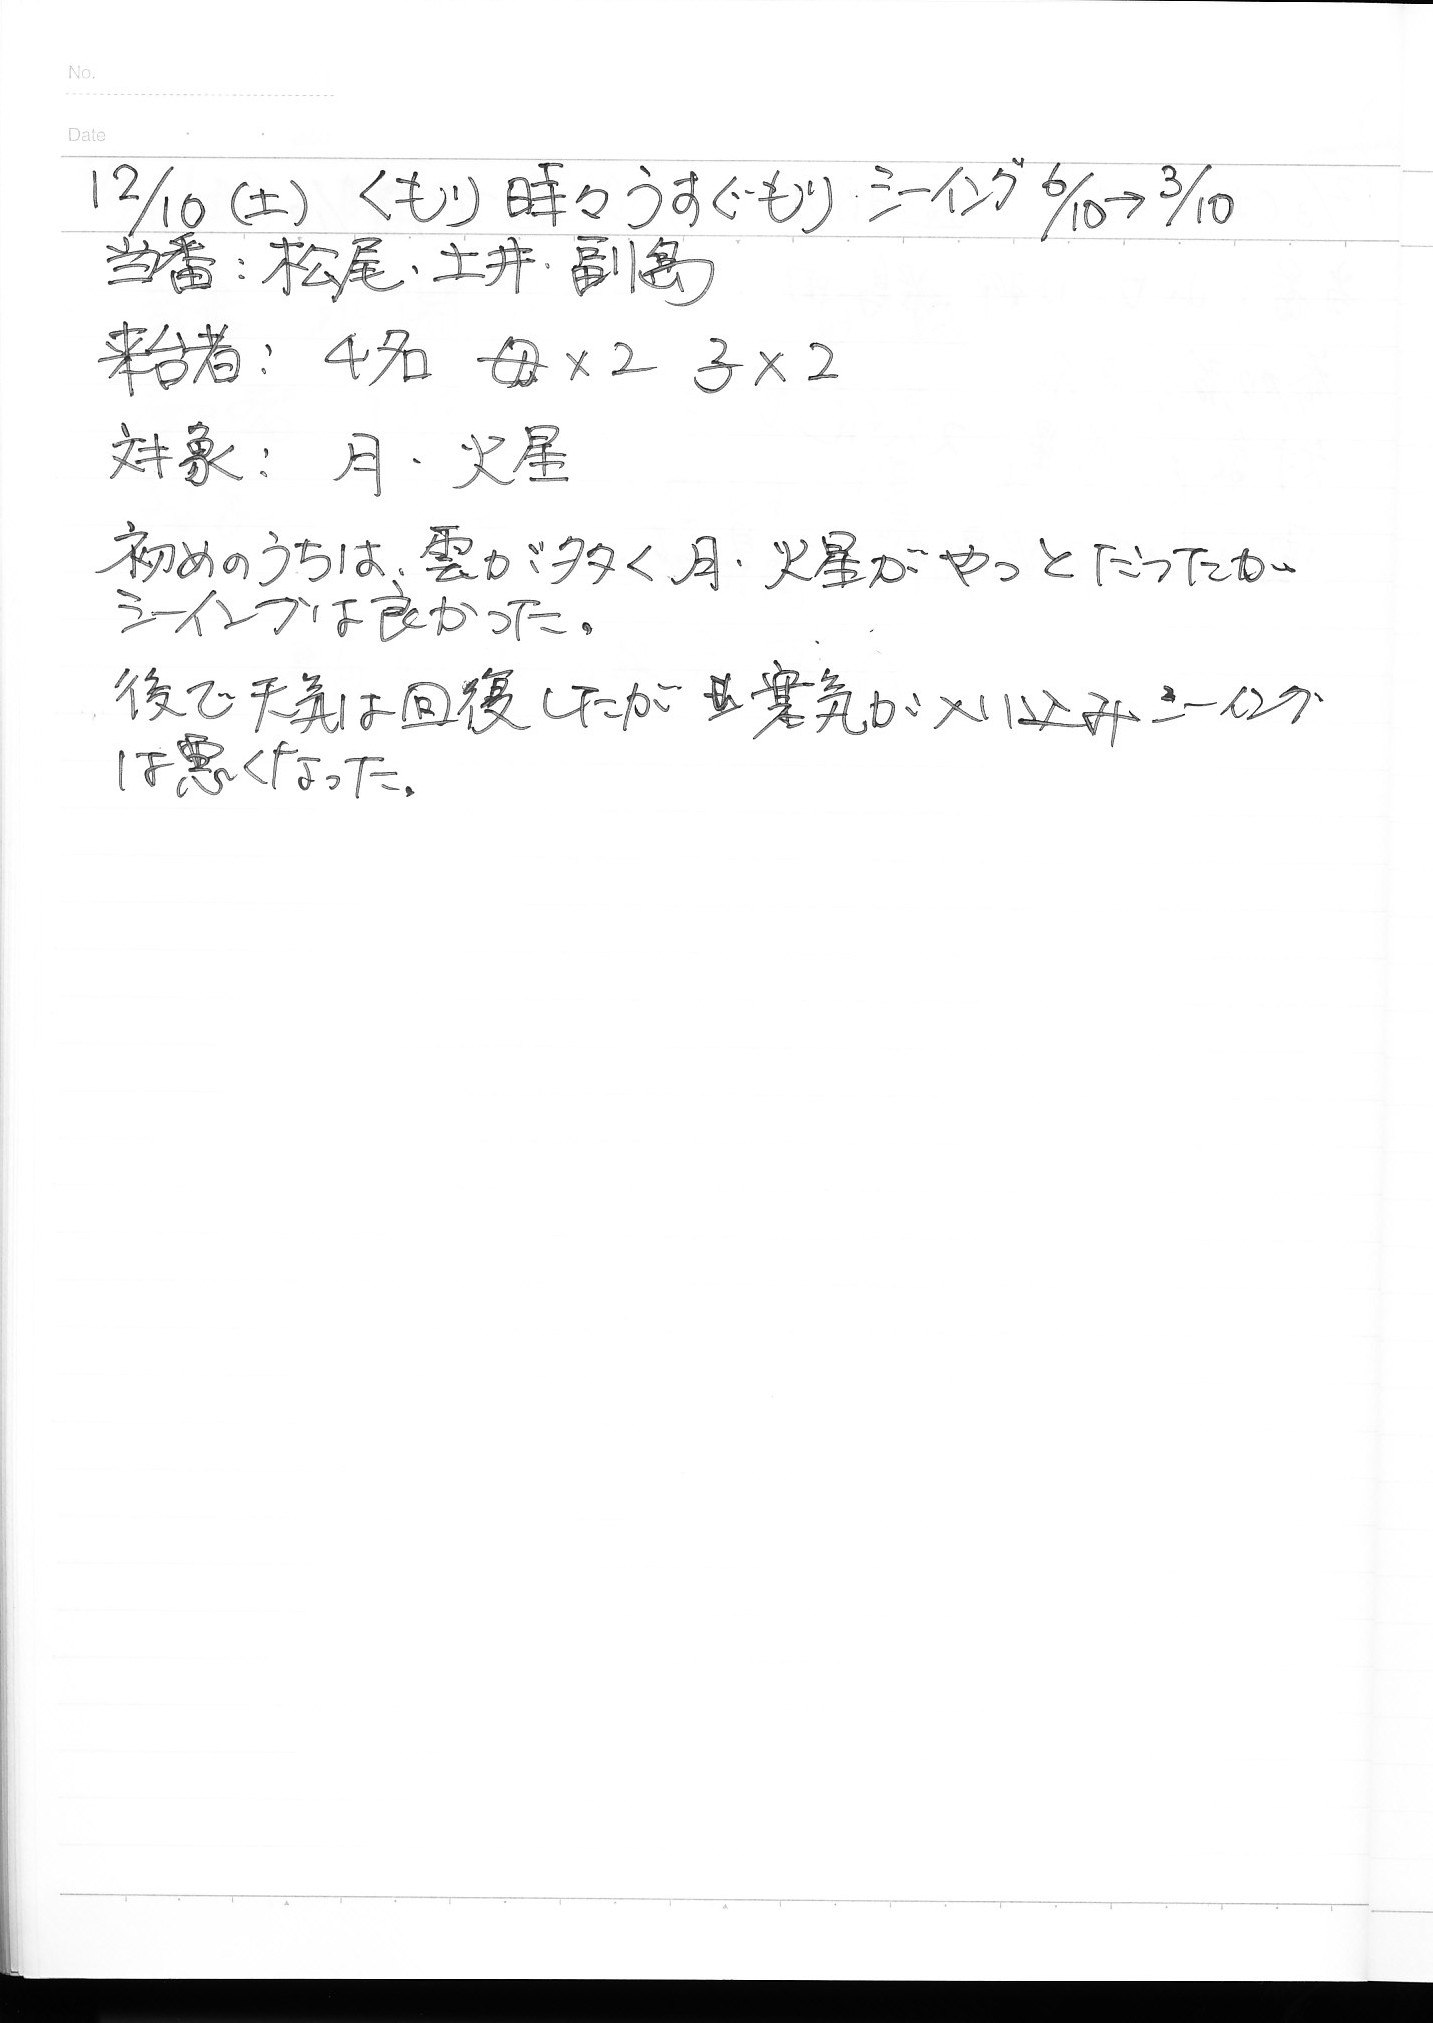 No.
Date
12/10(土) くもり時々うすぐもり シーイング 6/10→3/10
当番:松尾・土井・副島
来台者: 4名 母×2 子×2
対象: 月・火星
初めのうちは、雲が多く月・火星がやっとだったが
シーイングは良かった。
後で天気は回復したが 寒気が入り込みシーイング
は悪くなった。